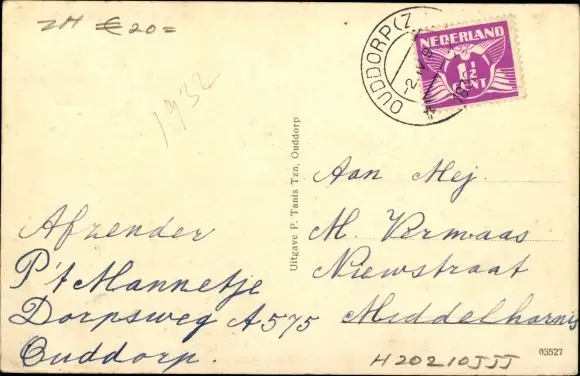 ZH € 20=
1932
OUDDORP (Z
NEDERLAND
1½
CENT
Uitgave P. Tanis Tzn, Ouddorp
Aan Mej.
M. Vermaas
Nieuwstraat
Middelharnis
Afzender
P't Mannetje
Dorpsweg A575
Ouddorp.
H20210JJJ
03527